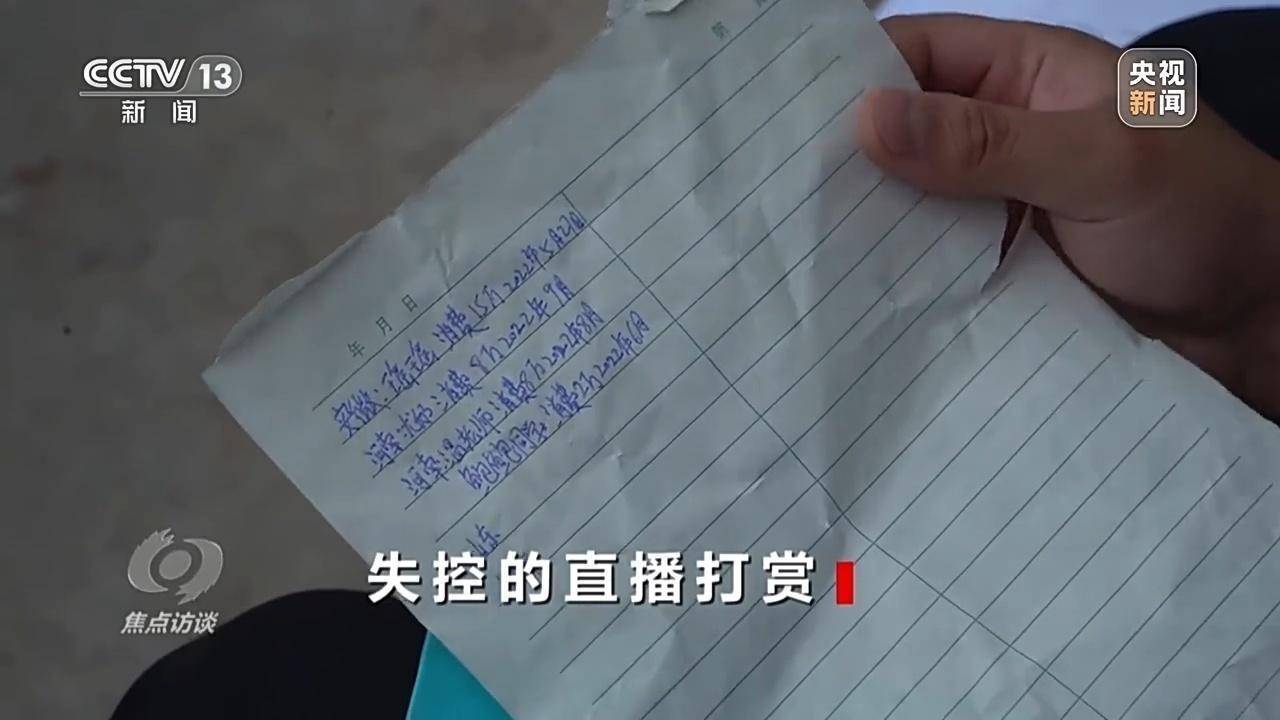 CCTV 13
新闻
央视
新闻
年 月 日
安徽:瑶瑶 消费15万2022年5月27日
河南: 消费8万2022年9月
河南:温老师 消费8万2022年8月
鲍鲍同学 消费2万2022年6月
山东
失控的直播打赏
焦点访谈